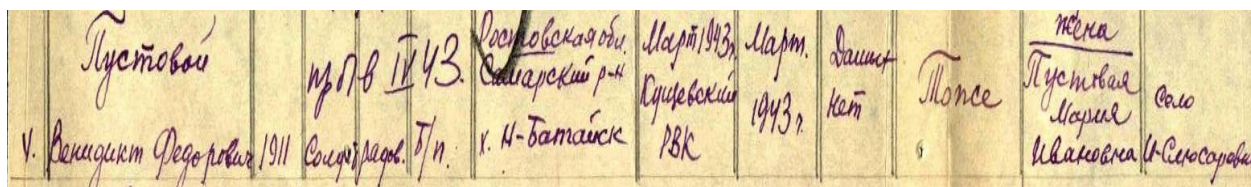 4.
Пустовой
Венидикт Федорович
1911
IV 43.
Солдат рядов.
Б/п.
Ростовская обл.
Самарский р-н
х. Н-Батайск
Март 1943 г.
Кущевский
РВК
Март.
1943 г.
нет
Тоже
жена
Пустовая
Мария
Ивановна
село